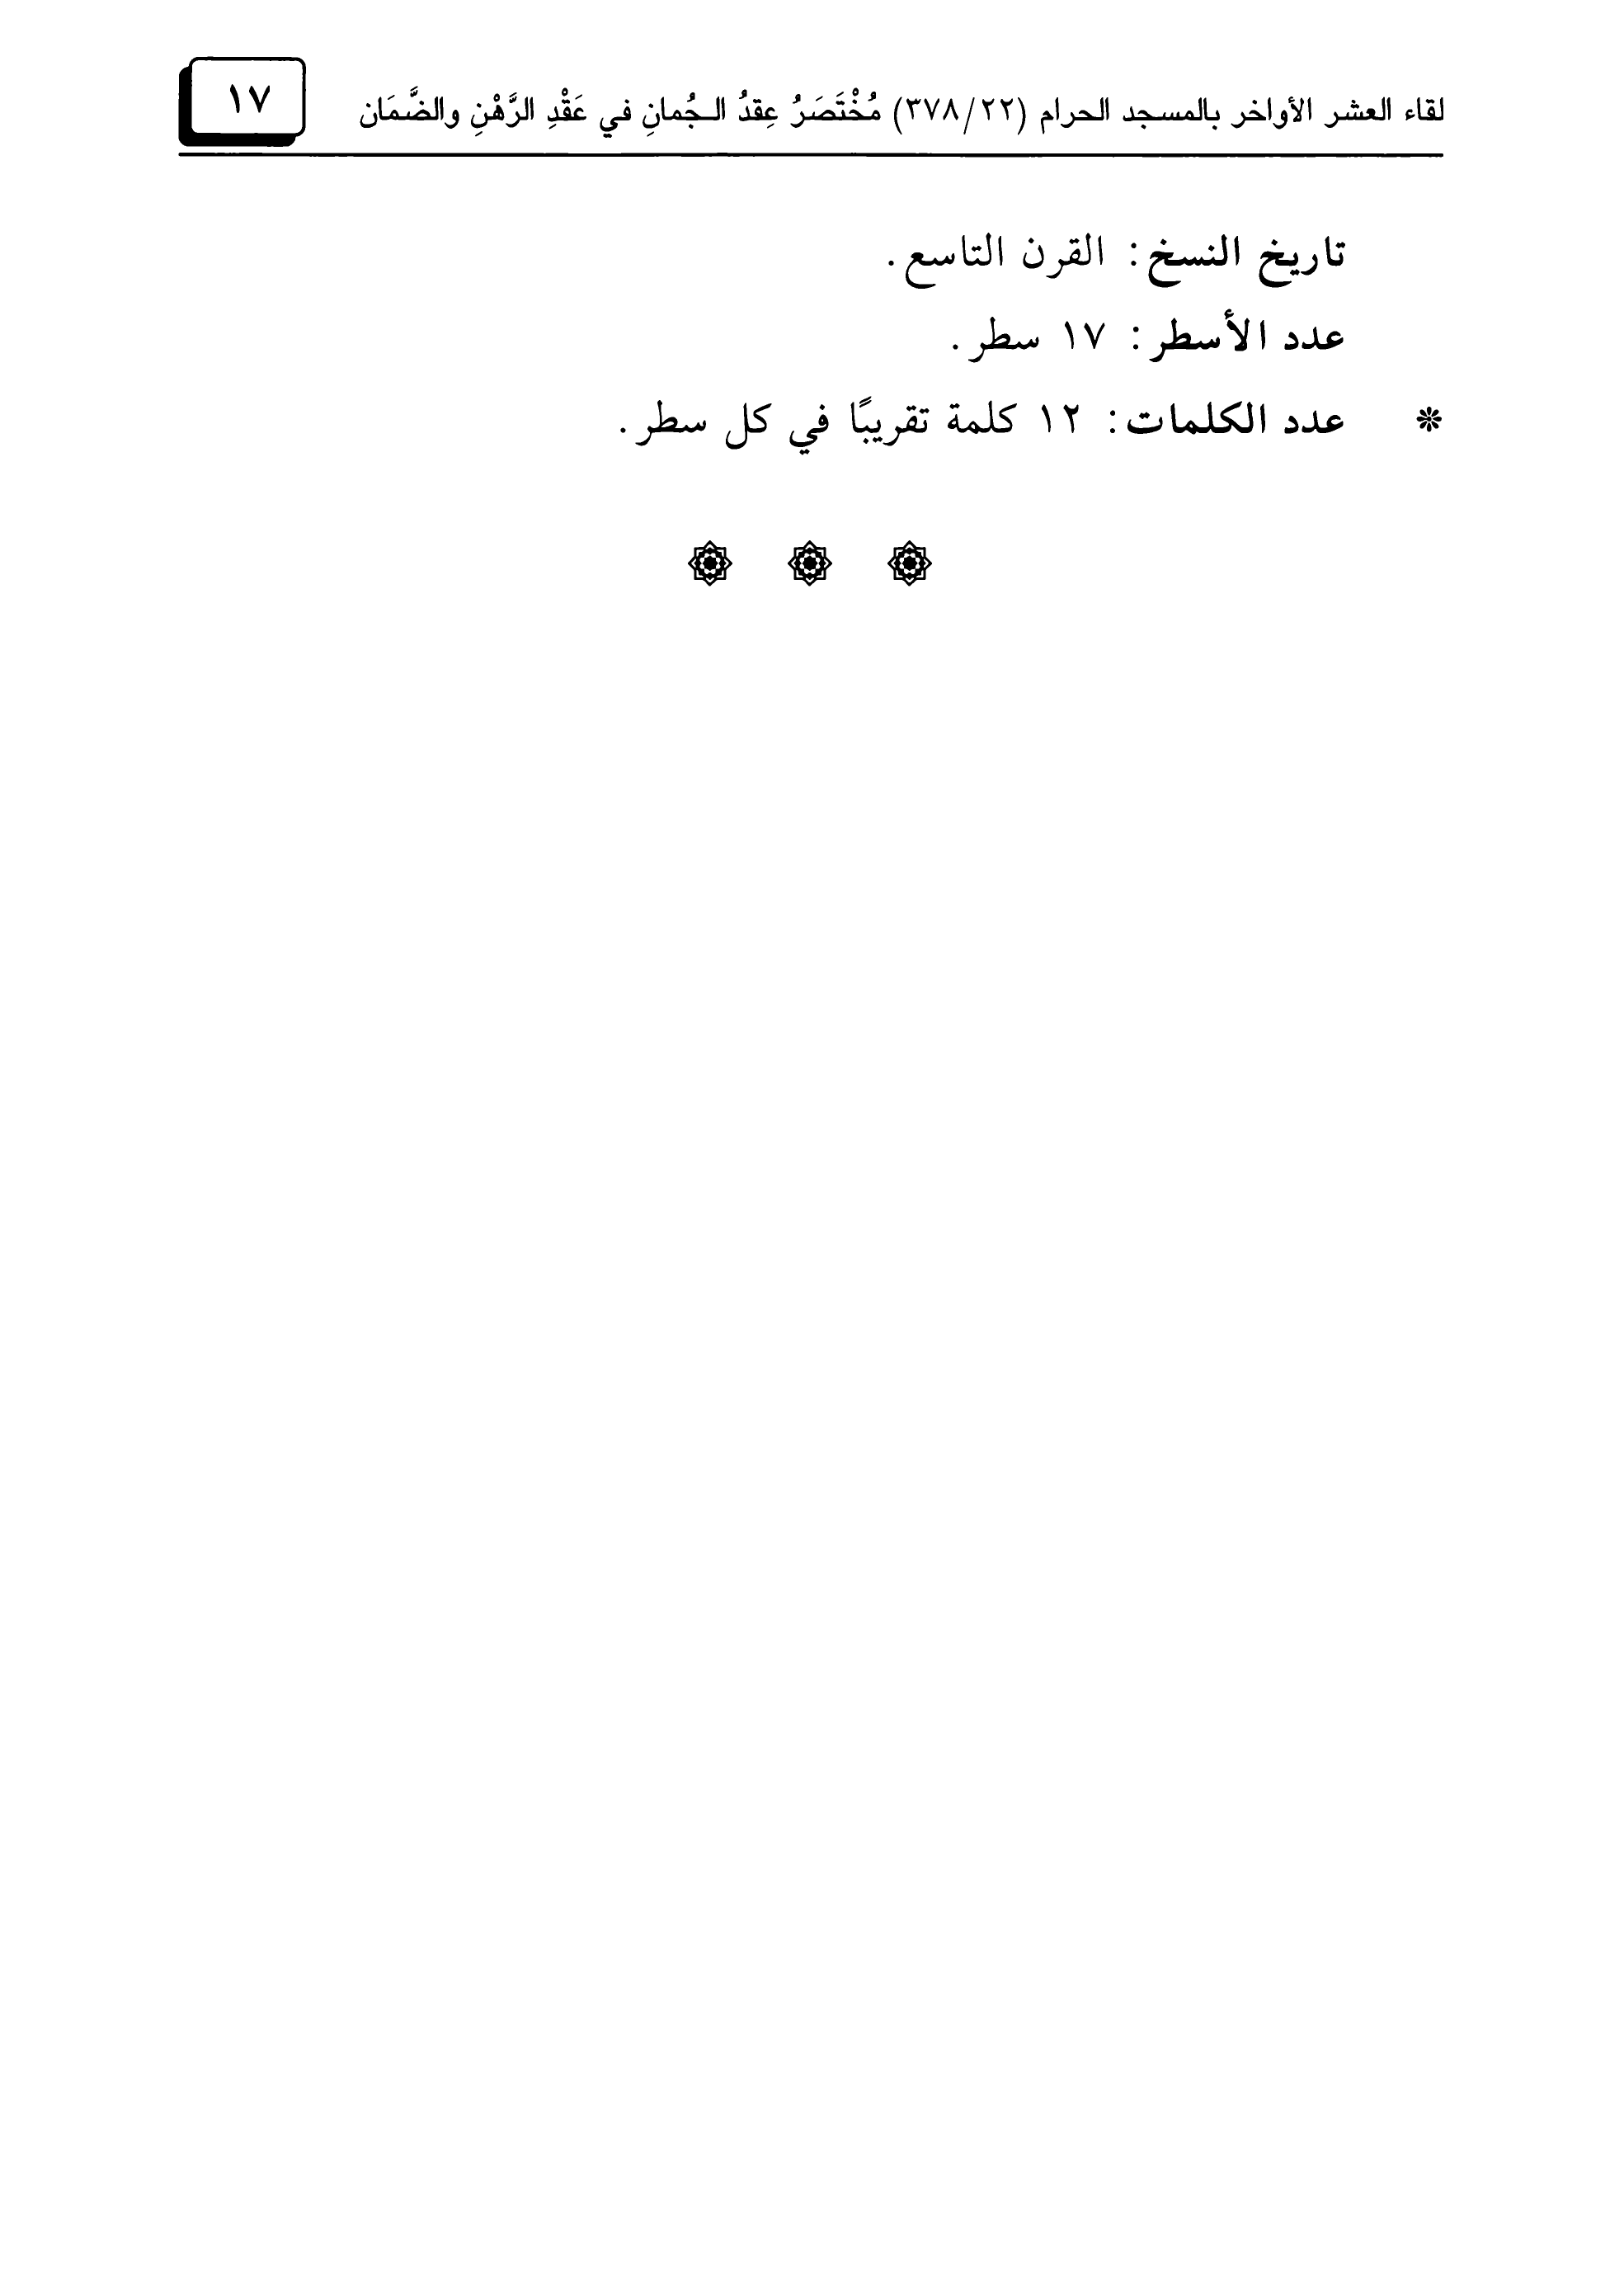 لقاء العشر الأواخر بالمسجد الحرام (٣٧٨/٢٢) مُخْتَصَرُ عِقدُ الـجُمانِ في عَقْدِ الرَّهْنِ والضَّمَان ١٧
تاريخ النسخ: القرن التاسع.
عدد الأسطر: ١٧ سطر.
* عدد الكلمات: ١٢ كلمة تقريبًا في كل سطر.